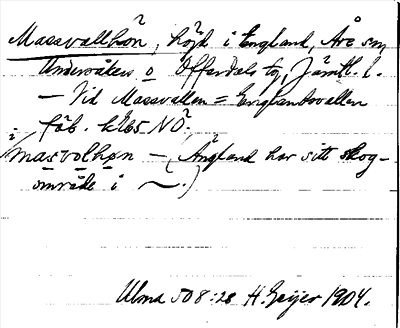 Massvallhōn, höjd i England, Åre sn,
Undersåkers o Offerdals tg, Jämtl. l.
— Vid Massvallen = Englandsvallen
fäb. k265 NÖ.
i masvolhøn — (Ängland har sitt skog-
område i ~.)
Ulma 508:28 H. Geijer 1904.